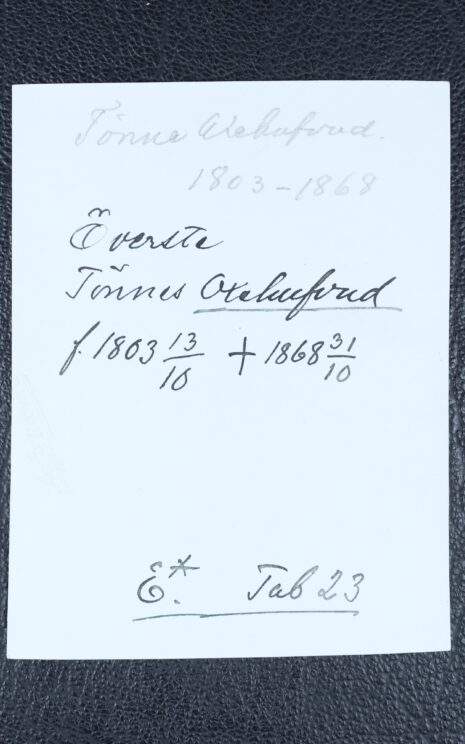 Tönne Oxehufvud.
1803-1868
Överste
Tönnes Oxehufvud
f. 1803 13/10 + 1868 31/10
E.* Tab 23